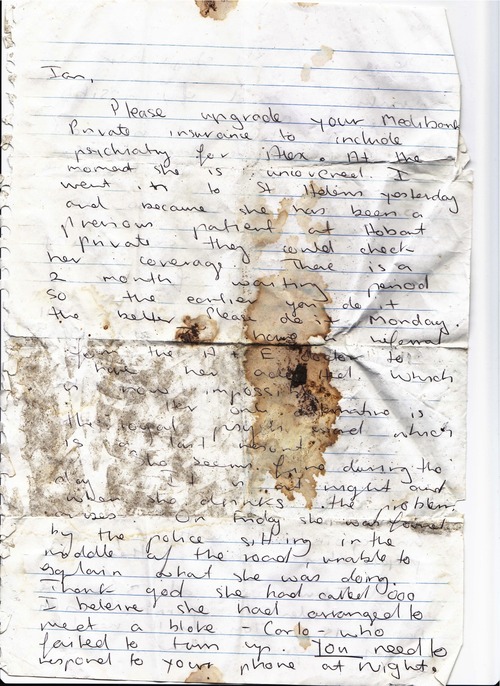 Ian,
Please upgrade your Medibank
Private insurance to include
psychiatry for Alex. At the
moment she is uncovered. I
went in to St Helens yesterday
and because she has been a
previous patient at Hobart
Private they could check
her coverage. There is a
2 month waiting period
so the earlier you do it
the better. Please do it Monday.
have a referral
from the A + E to
have her Which
is now
is
which
is a last resort.
she seems fine during the
day. It is at night and
when she drinks the problem
arises. On Friday she was found
by the police sitting in the
middle of the road, unable to
explain what she was doing.
Thank god she had called 000
I beleive she had arranged to
meet a bloke - Carlo - who
failed to turn up. You need to
respond to your phone at night.